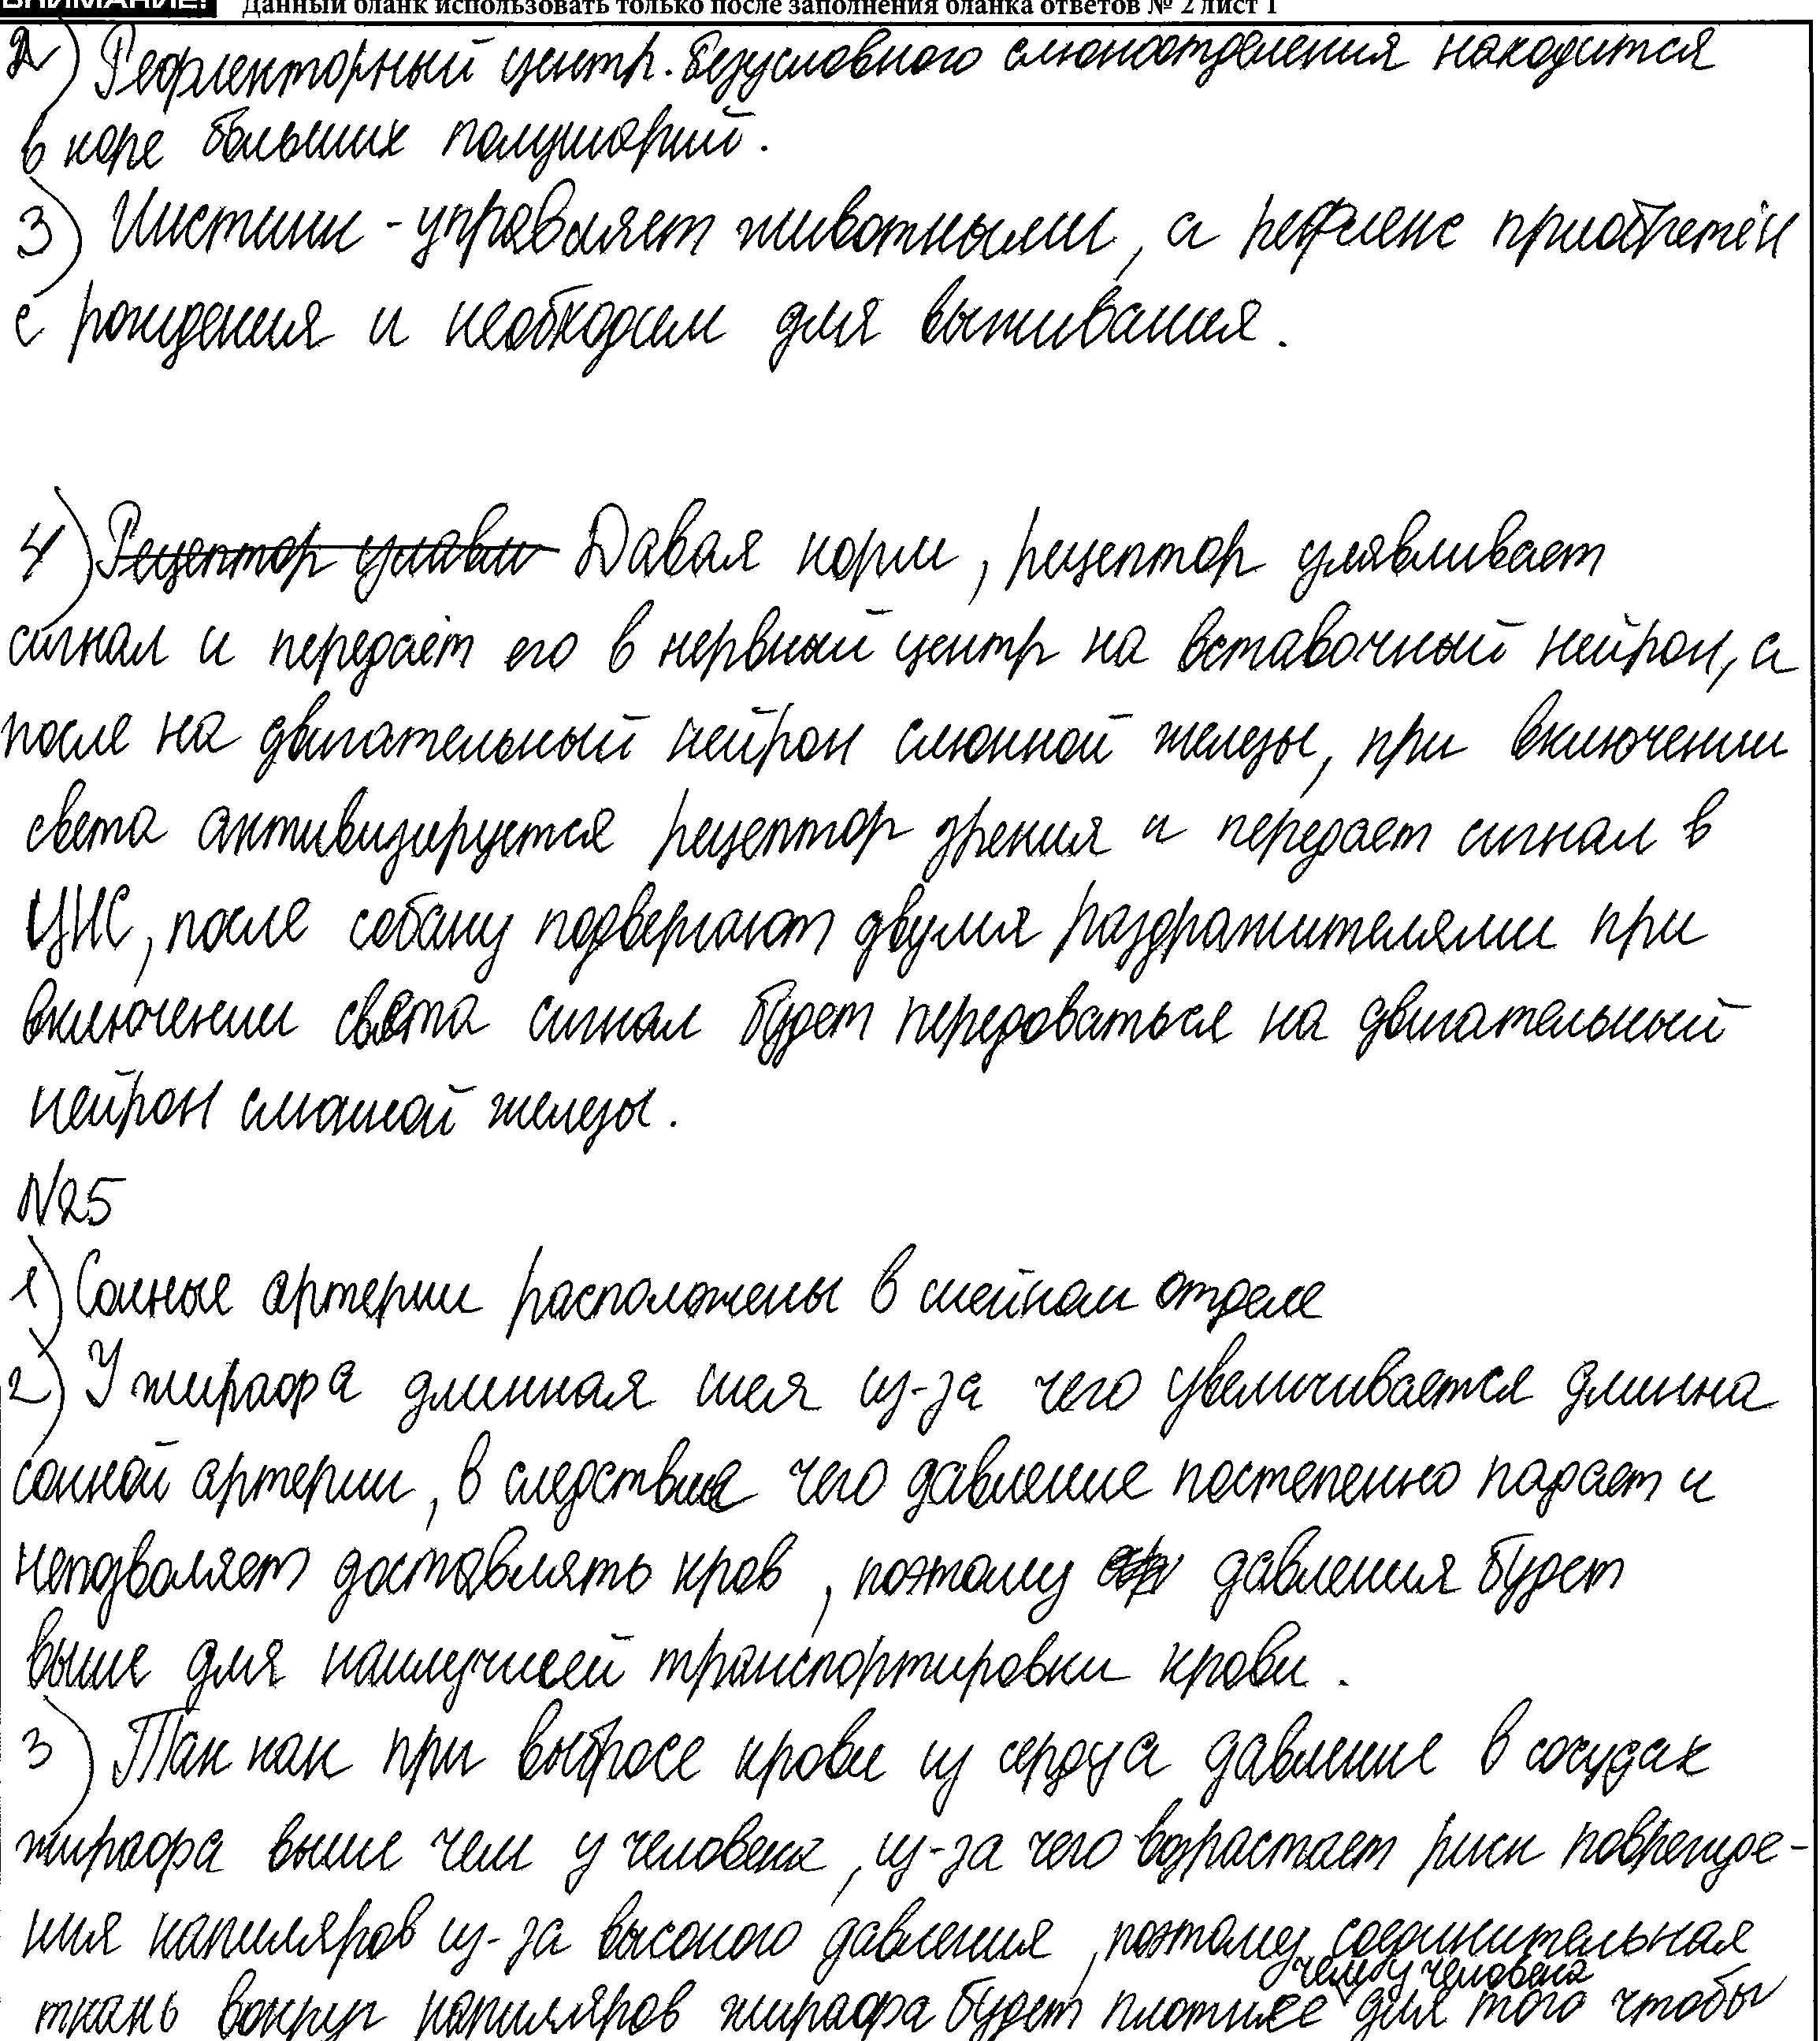 ВНИМАНИЕ! Данный бланк использовать только после заполнения бланка ответов № 2 лист 1
2) Рефлекторный центр. безусловного слюноотделения находится
в коре больших полушарий.
3) Инстинк - управляет животными, а рефлекс приобретён
с рождения и необходим для выживания.
4) Рецептор улавли Давая корм, рецептор улавливает
сигнал и передаёт его в нервный центр на вставочный нейрон, а
после на двигательный нейрон слюнной железы, при включении
света активизируется рецептор зрения и передает сигнал в
ЦНС, после собаку подвергают двумя раздражителями при
включении света сигнал будет передоваться на двигательный
нейрон слюнной железы.
N25
1) Сонные артерии расположены в шейном отделе
2) У жирафа длинная шея из-за чего увеличивается длинна
сонной артерии, в следствие чего давление постепенно падает и
непозволяет доставлять кров, поэтому давления будет
выше для наилучшей транспортировки крови.
3) Так как при выбросе крови из сердца давление в сосудах
жирафа выше чем у человека, из-за чего возрастает риск поврежде-
ния капиляров из-за высокого давления, поэтому соединительная
чем у человека
ткань вокруг капиляров жирафа будет плотнее для того чтобы